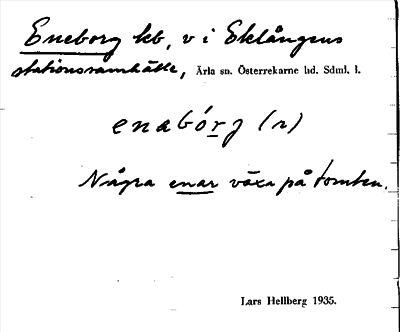 Eneborg kb, v i Eklångens
stationssamhälle, Ärla sn. Österrekarne hd. Sdml. l.
enabórg (n)
Några enar växa på tomten.
Lars Hellberg 1935.